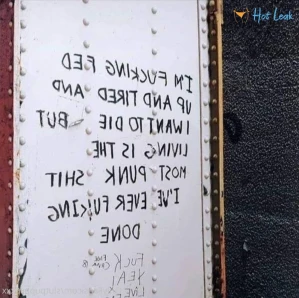 Hot Leak
I'M FUCKING FED
UP AND TIRED AND
I WANT TO DIE BUT
LIVING IS THE
MOST PUNK SHIT
I'VE EVER FUCKING
DONE
FUCK
YEA!